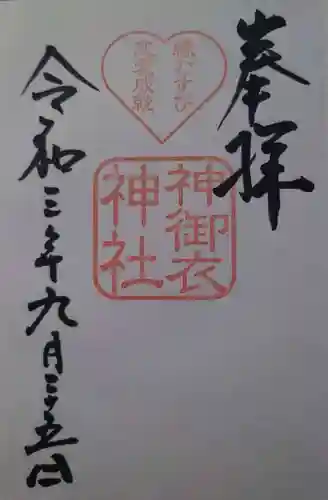 奉拝
縁むすび
恋愛成就
神御衣
神社
令和三年九月三十五日